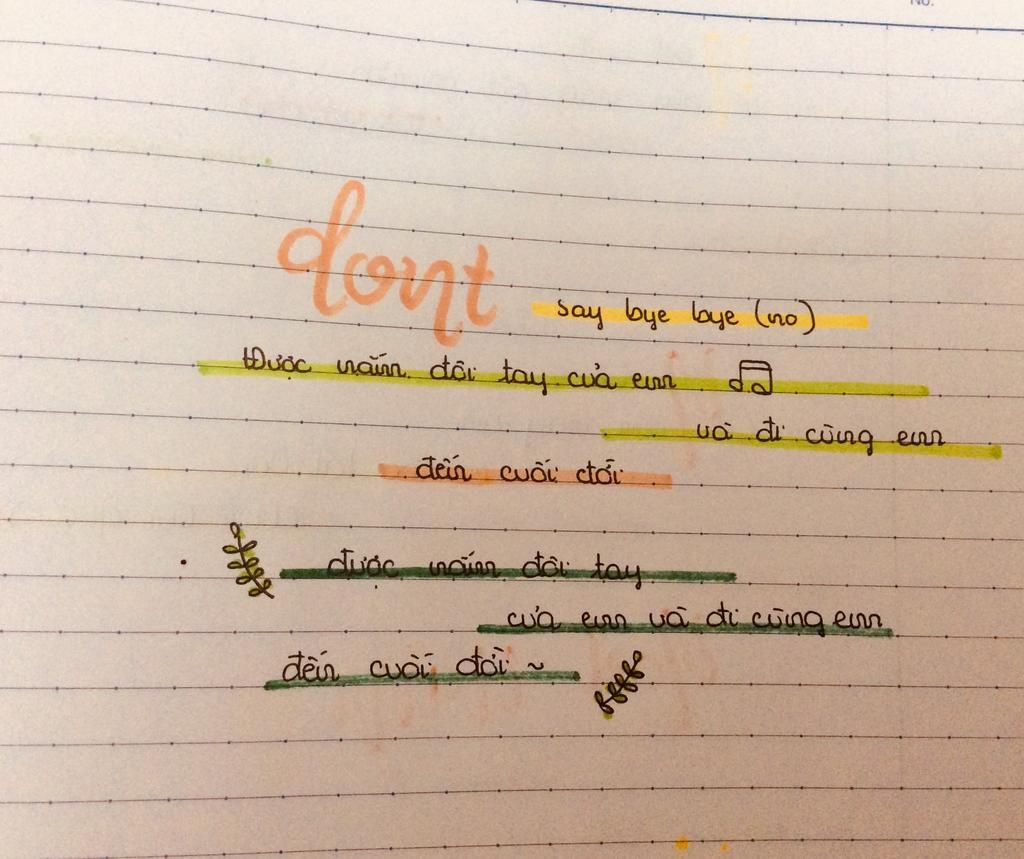 No.
dont
say bye bye (no)
Được nắm đôi tay của em
và đi cùng em
đến cuối đời
được nắm đôi tay
của em và đi cùng em
đến cuối đời ~